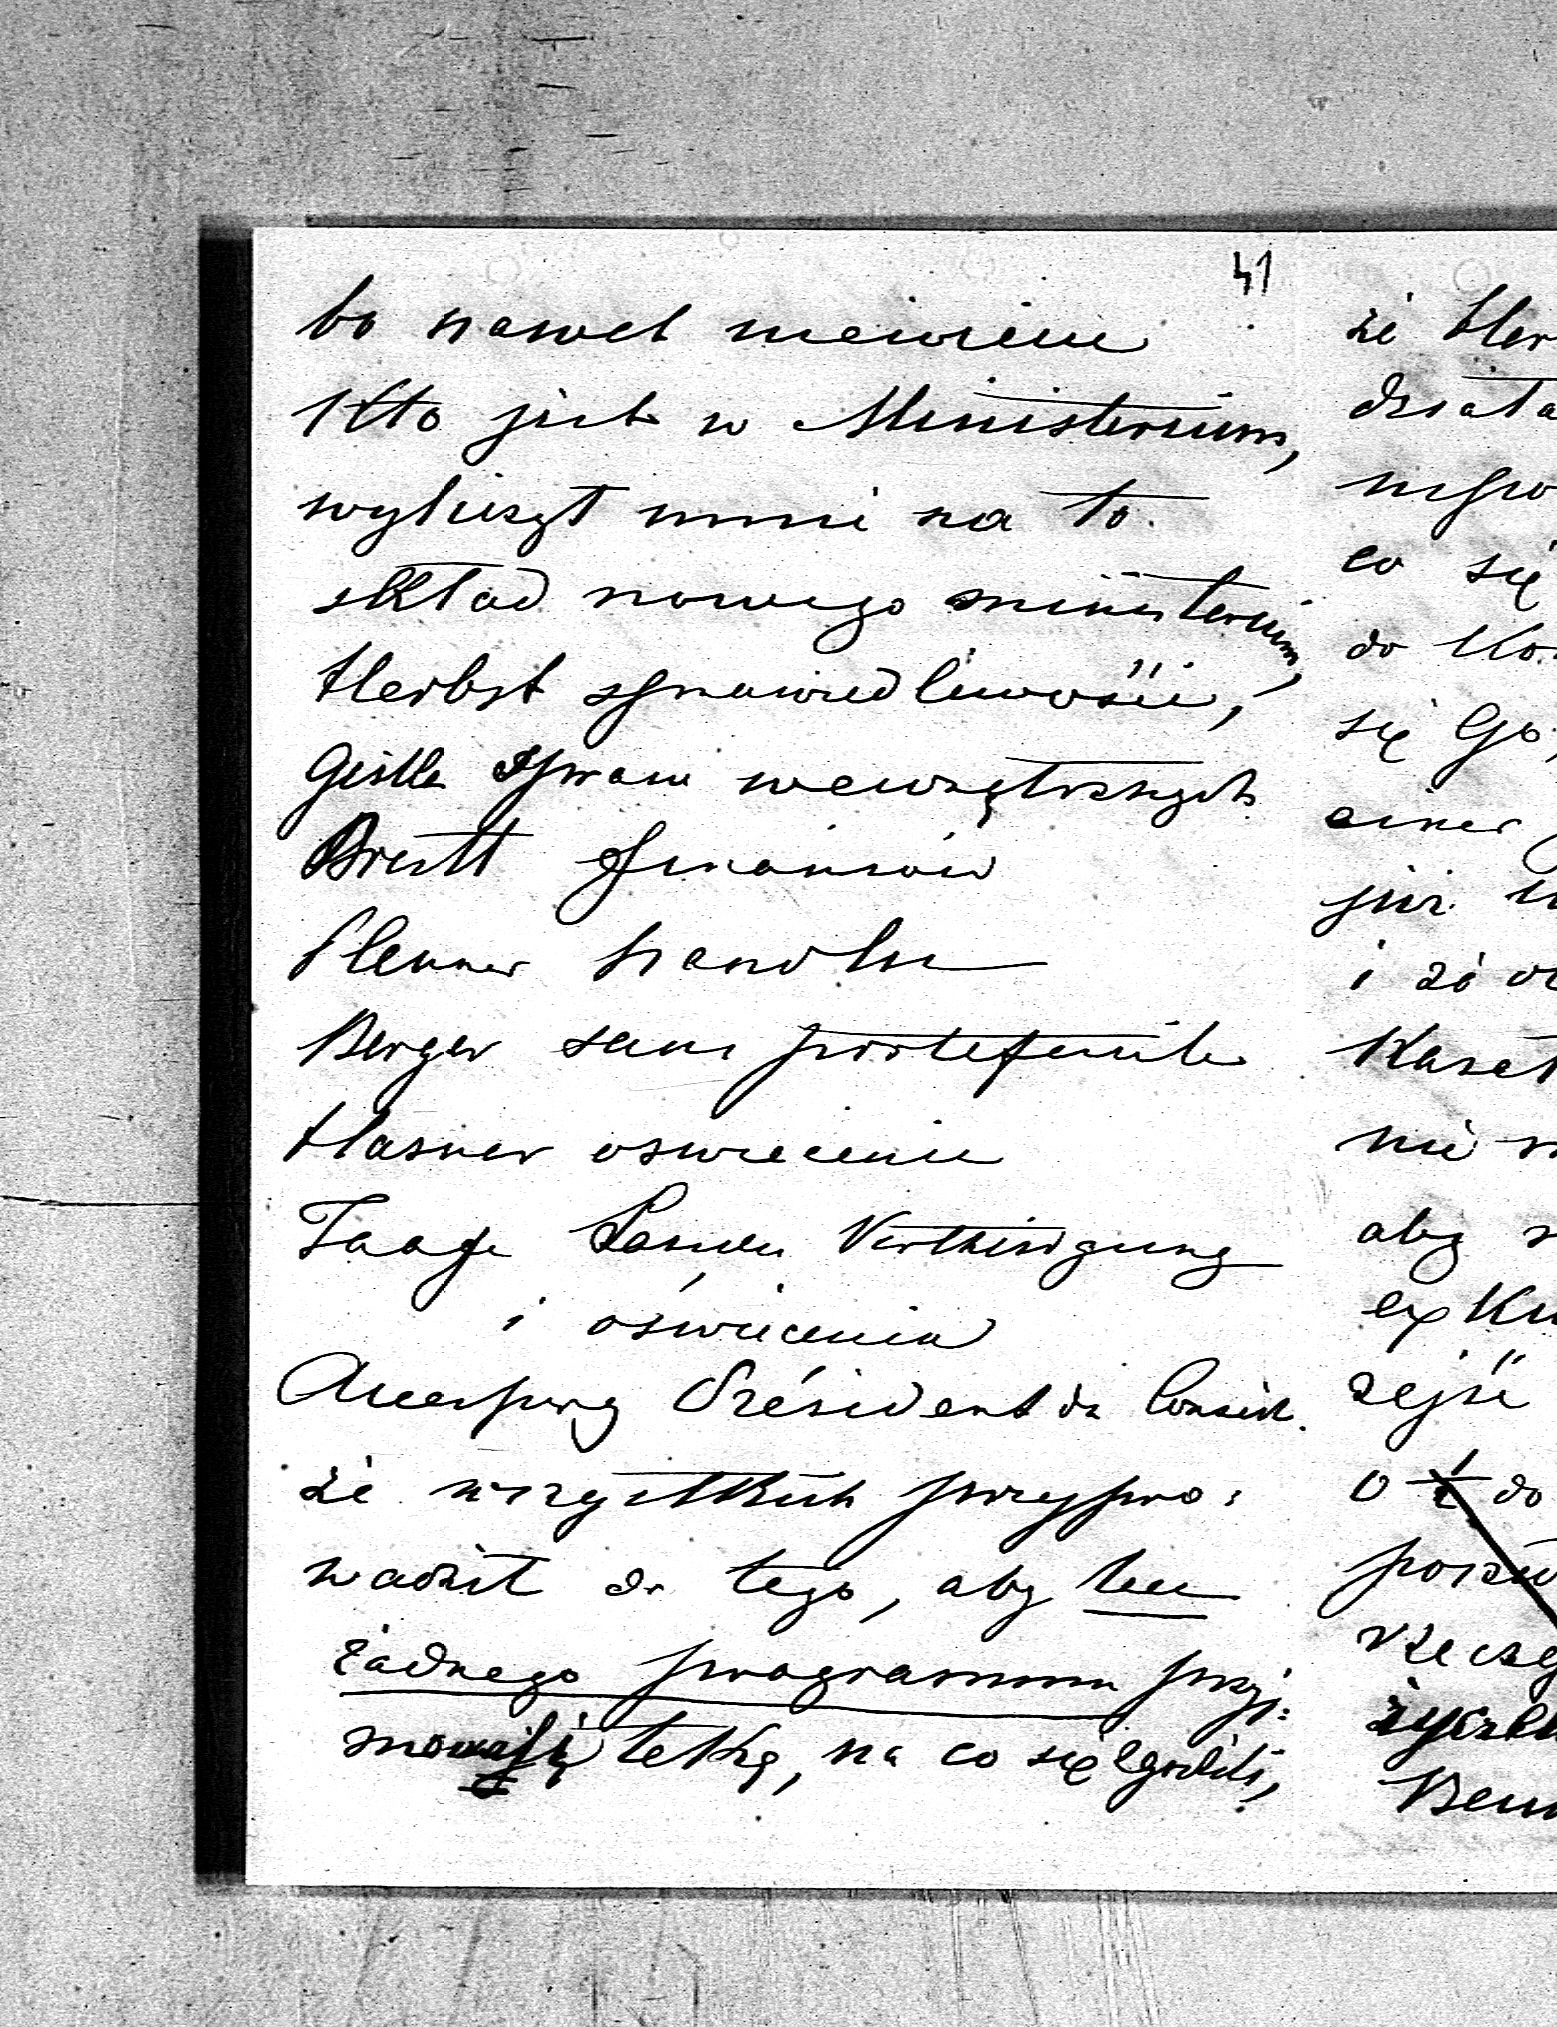 41
bo nawet niewiem
Kto jest w Ministerium,
wyliczył mnie na to
skład nowego ministerium,
Herbst sprawiedliwości,
Giskra spraw wewnętrznych
Brestl finansów
Plenner handlu
Berger sans portefeuille
Hasner oswiecenie
Taafe Landes Vertheidigung
i oświecenia
Auersperg Président du Conseil.
że wszystkich przypro:
wadził do tego, aby bez
żadnego programmu przyj:
mowali tekę, na co się zgodzili,
że Her
działa
co się
do Ko
się Go,
einer
już
i że
Kazał
nie
aby
zejść
o do